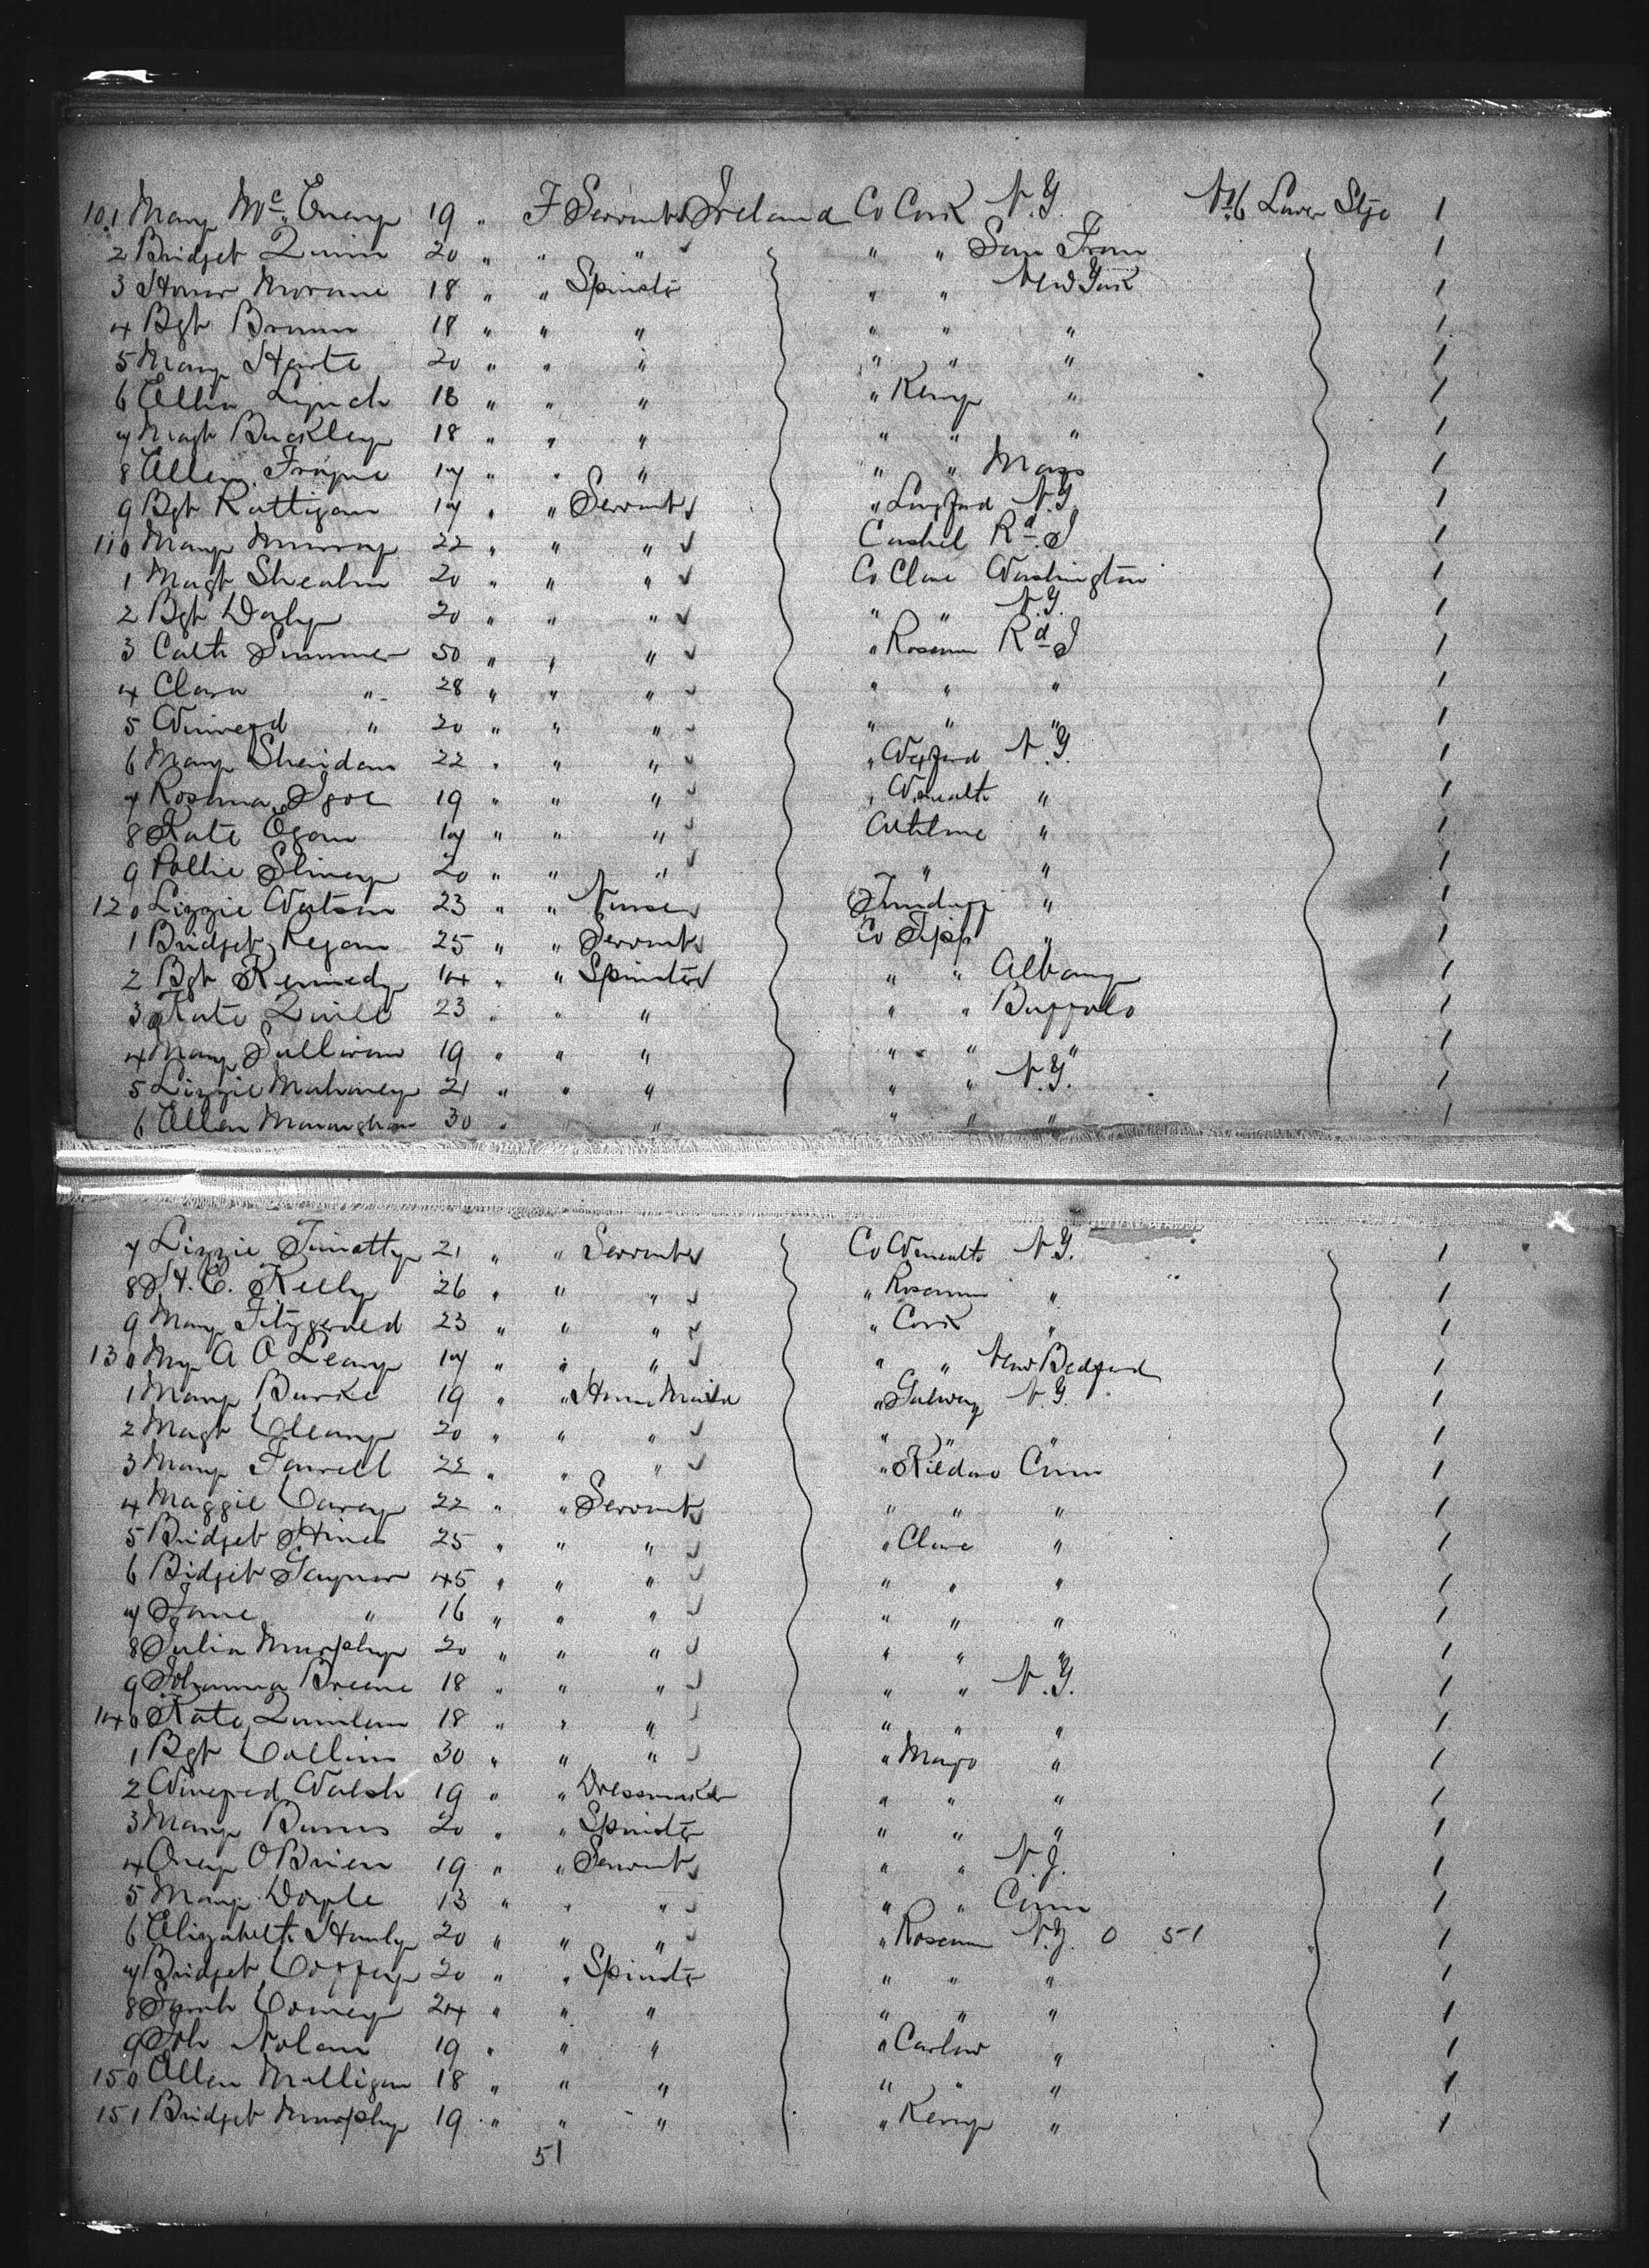 101 Mary Mc Enery 19 " F Servant Ireland Co Cork N.Y. No 6 Lower Stge 1
2 Bridget Quinn 20 " " " " " San Fran 1
3 Honor Morane 18 " " Spinstr " " New York 1
4 Bgt Brown 18 " " " " " " 1
5 Mary Harte 20 " " " " " " 1
6 Ellen Lynch 18 " " " " Kerry " 1
7 Magt Buckley 18 " " " " " " 1
8 Ellen Frayne 17 " " " " " Mass 1
9 Bgt Rattigan 17 " " Servant " Longford N.Y. 1
110 Mary Murray 22 " " " Cashel Rd. I 1
1 Magt Sheahan 20 " " " Co Clare Washington 1
2 Bgt Daly 20 " " " " " N.Y. 1
3 Cath Summer 50 " " " " Roscomm Rd I 1
4 Clara " 28 " " " " " " 1
5 Winnefd " 20 " " " " " " 1
6 Mary Sheridan 22 " " " " Wexford N.Y. 1
7 Rosanna Igoe 19 " " " " W.meath " 1
8 Kate Egan 17 " " " Athlone " 1
9 Pollie Slineny 20 " " " " " 1
120 Lizzie Watson 23 " " Nurse " 1
1 Bridget Regan 25 " " Servant Co Tipp " 1
2 Bgt Kennedy 14 " " Spinster " " Albany 1
3 Kate Quill 23 " " " " " Buffalo 1
4 Mary Sullivan 19 " " " " " " 1
5 Lizzie Mahoney 21 " " " " " N.Y. 1
6 Ellen Monaughan 30 " " " " " " 1
7 Lizzie 21 " " Servant Co W.meath N.Y. 1
8 H. E. Kelly 26 " " " " Roscomm " 1
9 Mary Fitzgerald 23 " " " " Cork " 1
130 My A O Leary 17 " " " " " New Bedford 1
1 Mary Burke 19 " " House Maid " Galway N.Y. 1
2 Magt Cleary 20 " " " " " " 1
3 Mary Farrell 22 " " " " Kildare Conn 1
4 Maggie Carey 22 " " Servant " " " 1
5 Bridget Hines 25 " " " " Clare " 1
6 Bidget Gaynor 45 " " " " " " 1
7 Jane " 16 " " " " " " 1
8 Julia Murphy 20 " " " " " " 1
9 Johanna Breene 18 " " " " " N.Y. 1
140 Kate Quinlan 18 " " " " " " 1
1 Bgt Collins 30 " " " " Mayo " 1
2 Winefred Walsh 19 " " Dressmaker " " " 1
3 Mary Burns 20 " " Spinstr " " " 1
4 Oney O Brien 19 " " Servant " " N.J. 1
5 Mary Doyle 13 " " " " " Conn 1
6 Elizabeth Hanly 20 " " " " Roscomm N.Y. 0 51 1
7 Bridget Coffey 20 " " Spinstr " " " 1
8 Sarah Comey 24 " " " " " " 1
9 Joh Nolan 19 " " " " Carlow " 1
150 Ellen Mulligan 18 " " " " " " 1
151 Bridget Murphy 19 " " " " Kerry " 1
51